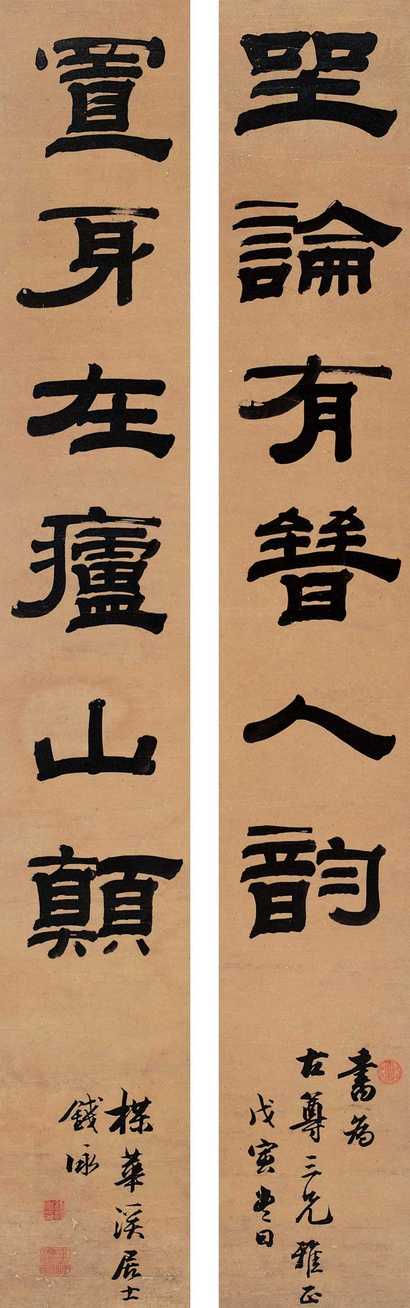 坐論有晉人韵
書為
古尊三兄雅正
戊寅日
置身在廬山顛
楳華溪居士
錢泳